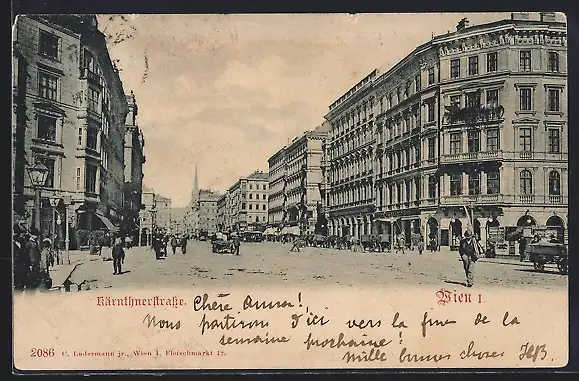 Kärnthnerstraße.
Wien I
Chère Anna!
Nous partirons d'ici vers la fin de la
semaine prochaine!
Mille bonnes choses
2086 C. Ledermann jr., Wien I. Fleischmarkt 12.